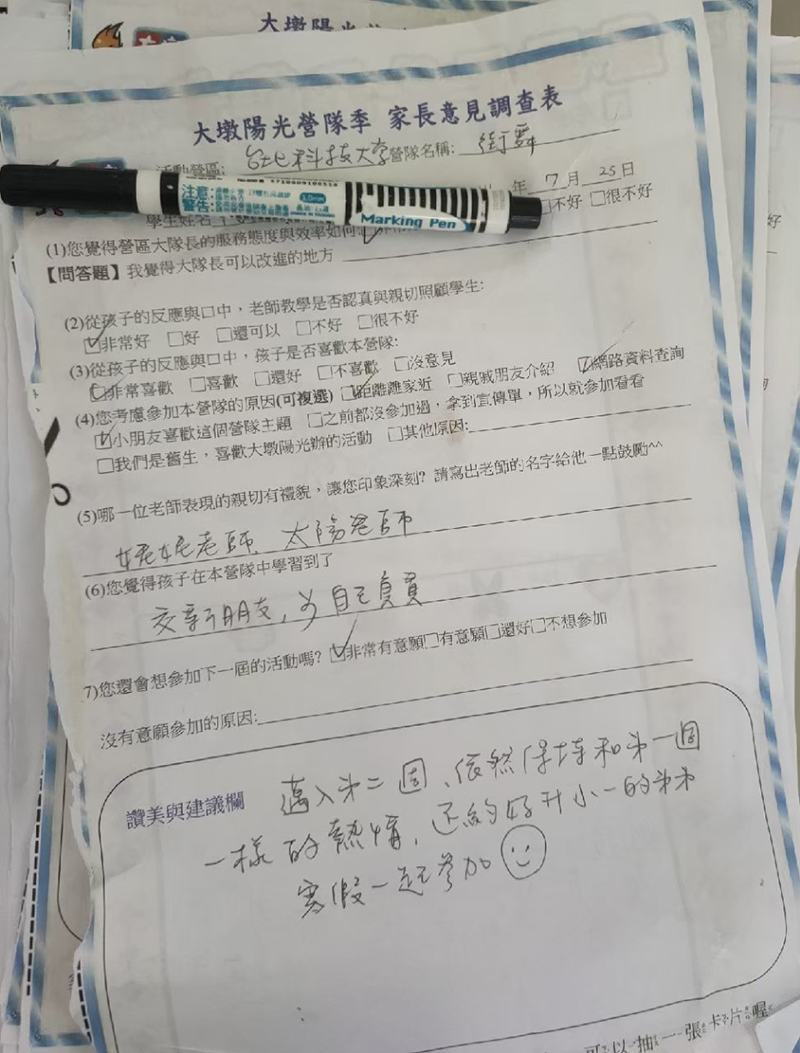 大墩陽光營隊季 家長意見調查表
活動營區: 台北科技大學 營隊名稱: 街舞
年 7 月 25 日
注意:
警告:
Marking Pen
學生姓名
□不好 □很不好
(1)您覺得營區大隊長的服務態度與效率如何
【問答題】我覺得大隊長可以改進的地方
(2)從孩子的反應與口中，老師教學是否認真與親切照顧學生:
☑非常好 □好 □還可以 □不好 □很不好
(3)從孩子的反應與口中，孩子是否喜歡本營隊:
☑非常喜歡 □喜歡 □還好 □不喜歡 □沒意見
(4)您考慮參加本營隊的原因(可複選) ☑距離離家近 □親戚朋友介紹 ☑網路資料查詢
☑小朋友喜歡這個營隊主題 □之前都沒參加過，拿到宣傳單，所以就參加看看
□我們是舊生，喜歡大墩陽光辦的活動 □其他原因:
(5)哪一位老師表現的親切有禮貌，讓您印象深刻? 請寫出老師的名字給他一點鼓勵^^
妮妮老師、太陽老師
(6)您覺得孩子在本營隊中學習到了
交新朋友, 為自己負責
7)您還會想參加下一屆的活動嗎? ☑非常有意願□有意願□還好□不想參加
沒有意願參加的原因:
讚美與建議欄
邁入第二週、依然保持和第一週
一樣的熱情, 还約好升小一的弟弟
寒假一起參加
可以抽一張卡片喔